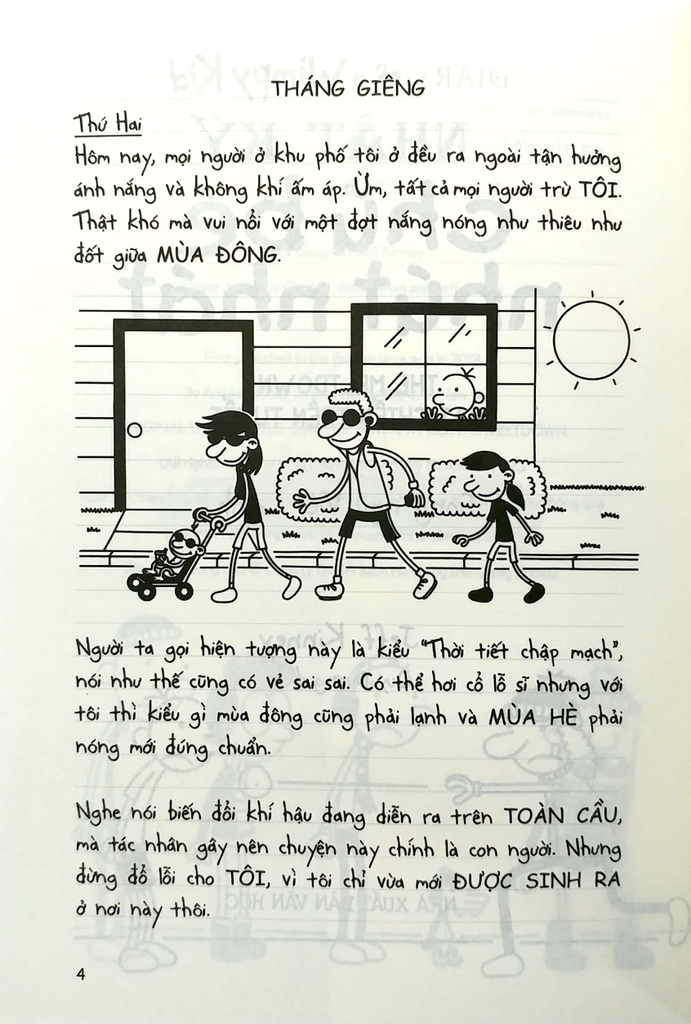 THÁNG GIÊNG
Thứ Hai
Hôm nay, mọi người ở khu phố tôi ở đều ra ngoài tận hưởng
ánh nắng và không khí ấm áp. Ừm, tất cả mọi người trừ TÔI.
Thật khó mà vui nổi với một đợt nắng nóng như thiêu như
đốt giữa MÙA ĐÔNG.
Người ta gọi hiện tượng này là kiểu "Thời tiết chập mạch",
nói như thế cũng có vẻ sai sai. Có thể hơi cổ lỗ sĩ nhưng với
tôi thì kiểu gì mùa đông cũng phải lạnh và MÙA HÈ phải
nóng mới đúng chuẩn.
Nghe nói biến đổi khí hậu đang diễn ra trên TOÀN CẦU,
mà tác nhân gây nên chuyện này chính là con người. Nhưng
đừng đổ lỗi cho TÔI, vì tôi chỉ vừa mới ĐƯỢC SINH RA
ở nơi này thôi.
4